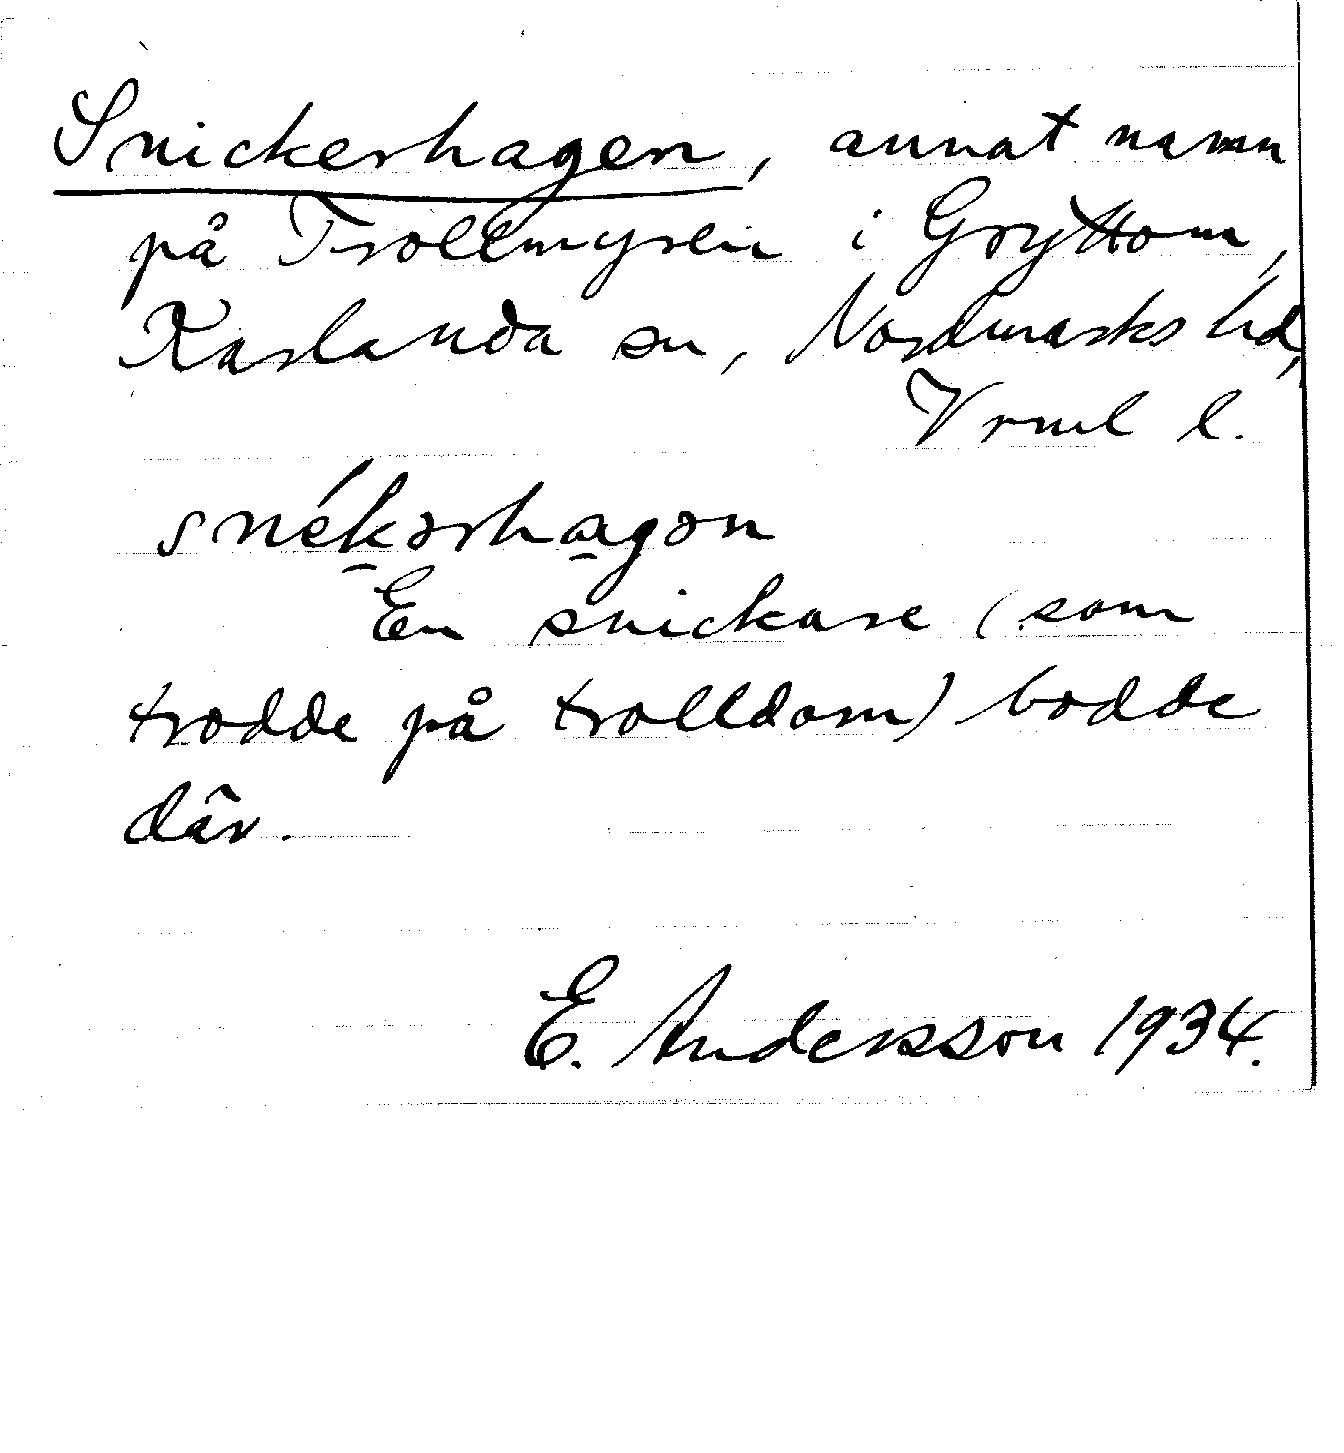 Snickerhagen, annat namn
på Trollmyren i Gryttom,
Karlanda sn, Nordmarks hd,
Vrml l.
snék̯ərha̯gən
En snickare (som
trodde på trolldom) bodde
där.
E. Andersson 1934.